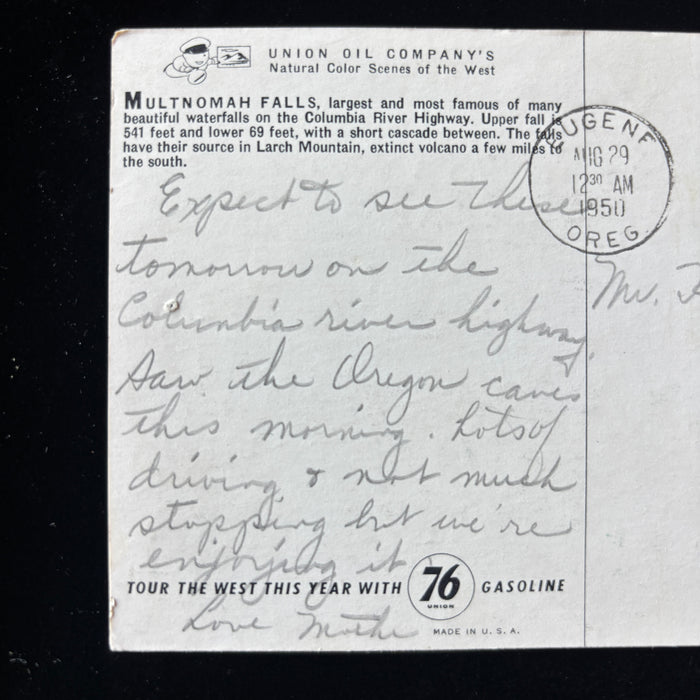 UNION OIL COMPANY'S
Natural Color Scenes of the West
MULTNOMAH FALLS, largest and most famous of many
beautiful waterfalls on the Columbia River Highway. Upper fall is
541 feet and lower 69 feet, with a short cascade between. The falls
have their source in Larch Mountain, extinct volcano a few miles to
the south.
EUGENE
AUG 29
12 30 AM
1950
OREG.
Expect to see these
tomorrow on the
Columbia river highway.
Saw the Oregon caves
this morning. Lots of
driving & not much
stopping but we're
enjoying it
Love Mothe
Mr.
TOUR THE WEST THIS YEAR WITH 76 UNION GASOLINE
MADE IN U. S. A.